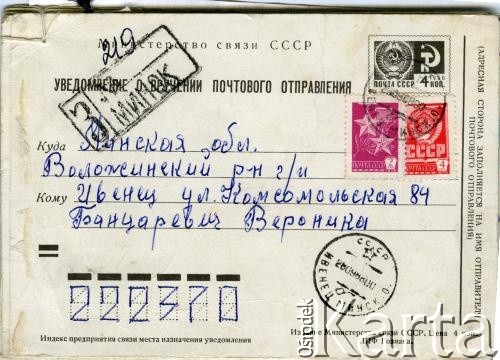 Министерство связи СССР
219
УВЕДОМЛЕНИЕ О ВРУЧЕНИИ ПОЧТОВОГО ОТПРАВЛЕНИЯ
З МИНСК
ПОЧТА СССР 4 КОП.
ПОЧТА СССР 2
СССР
ПОЧТА СССР
(АДРЕСНАЯ СТОРОНА ЗАПОЛНЯЕТСЯ НА ИМЯ ОТПРАВИТЕЛЯ
ПОЧТОВОГО ОТПРАВЛЕНИЯ)
Куда Минская обл.
Воложинский р-н г/п
Кому Ивенец ул. Комсомольская 84
Банцаревич Вероника
СССР
ИВЕНЕЦ МИНСК. О.
222370
Индекс предприятия связи места назначения уведомления
Издание Министерства связи СССР. Цена 4
ПФГ Гознака.
ośrodek
Karta